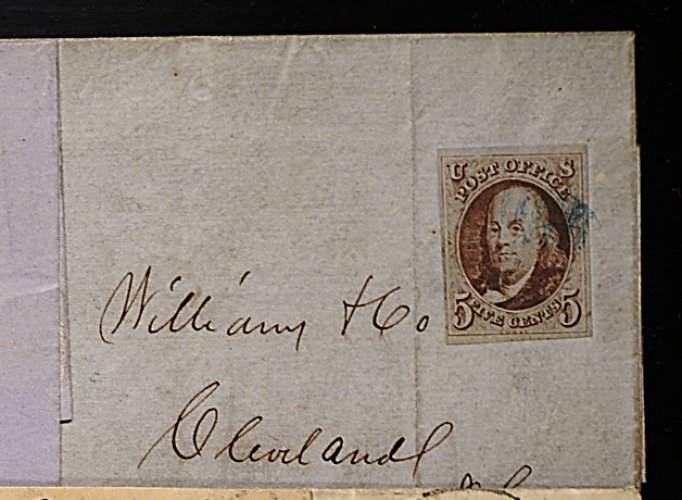 U S
POST OFFICE
5 FIVE CENTS 5
Williams & Co
Cleveland